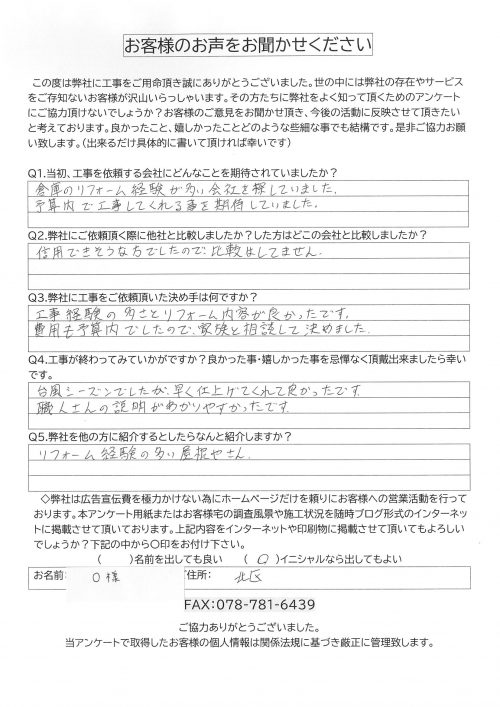 お客様のお声をお聞かせください
この度は弊社に工事をご用命頂き誠にありがとうございました。世の中には弊社の存在やサービス
をご存知ないお客様が沢山いらっしゃいます。その方たちに弊社をよく知って頂くためのアンケート
にご協力頂けないでしょうか?お客様のご意見をお聞かせ頂き、今後の活動に反映させて頂きたい
と考えております。良かったこと、嬉しかったことどのような些細な事でも結構です。是非ご協力お願
い致します。(出来るだけ具体的に書いて頂ければ幸いです)
Q1.当初、工事を依頼する会社にどんなことを期待されていましたか?
倉庫のリフォーム経験が多い会社を探していました。
予算内で工事してくれる事を期待していました。
Q2.弊社にご依頼頂く際に他社と比較しましたか?した方はどこの会社と比較しましたか?
信用できそうな方でしたので、比較はしてません。
Q3.弊社に工事をご依頼頂いた決め手は何ですか?
工事経験の多さとリフォーム内容が良かったです。
費用も予算内でしたので、家族と相談して決めました。
Q4.工事が終わってみていかがですか?良かった事・嬉しかった事を忌憚なく頂戴出来ましたら幸い
です。
台風シーズンでしたが、早く仕上げてくれて良かったです。
職人さんの説明がわかりやすかったです。
Q5.弊社を他の方に紹介するとしたらなんと紹介しますか?
リフォーム経験の多い屋根やさん。
◇弊社は広告宣伝費を極力かけない為にホームページだけを頼りにお客様への営業活動を行って
おります。本アンケート用紙またはお客様宅の調査風景や施工状況を随時ブログ形式のインターネッ
トに掲載させて頂いております。上記内容をインターネットや印刷物に掲載させて頂いてもよろしい
でしょうか?下記の中から〇印をお付け下さい。
( )名前を出しても良い (〇)イニシャルなら出してもよい
お名前: O様 ご住所: 北区
FAX:078-781-6439
ご協力ありがとうございました。
当アンケートで取得したお客様の個人情報は関係法規に基づき厳正に管理致します。